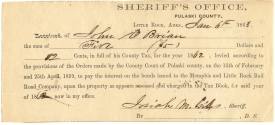 SHERIFF'S OFFICE,
PULASKI COUNTY.
LITTLE ROCK, ARKS. Jan 6th 186
Received, of John D Brian
the sum of Five ($5) Dollars and
Cents, in full of his County Tax, for the year 1862, levied according to the
provisions of the Orders made by the County Court of Pulaski county, on the 18th of February
and 25th April, 1859, to pay the interest on the bonds issued to the Memphis and Little Rock Rail
Road Company, upon the property as appears assessed and charged in Tax Book, for said year
of 186 now in my office.
Sheriff.
By D. S.